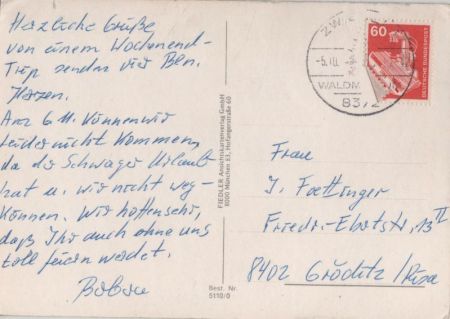 Herzliche Grüße
von einem Wochenend-
Trip senden wir
Herzen.
Am 6.11. können wir
leider nicht kommen
da der Schwager Urlaub
hat u. wir nicht weg-
können. Wir hoffen sehr,
daß Ihr auch ohne uns
toll feiern werdet.
FIEDLER Ansichtskartenverlag GmbH
8000 München 83, Hofangerstraße 60
Best. Nr.
5110/0
60
DEUTSCHE BUNDESPOST
Frau
J. Foettinger
Friedr.-Ebertstr. 13 II
8402 Gröditz / Riesa